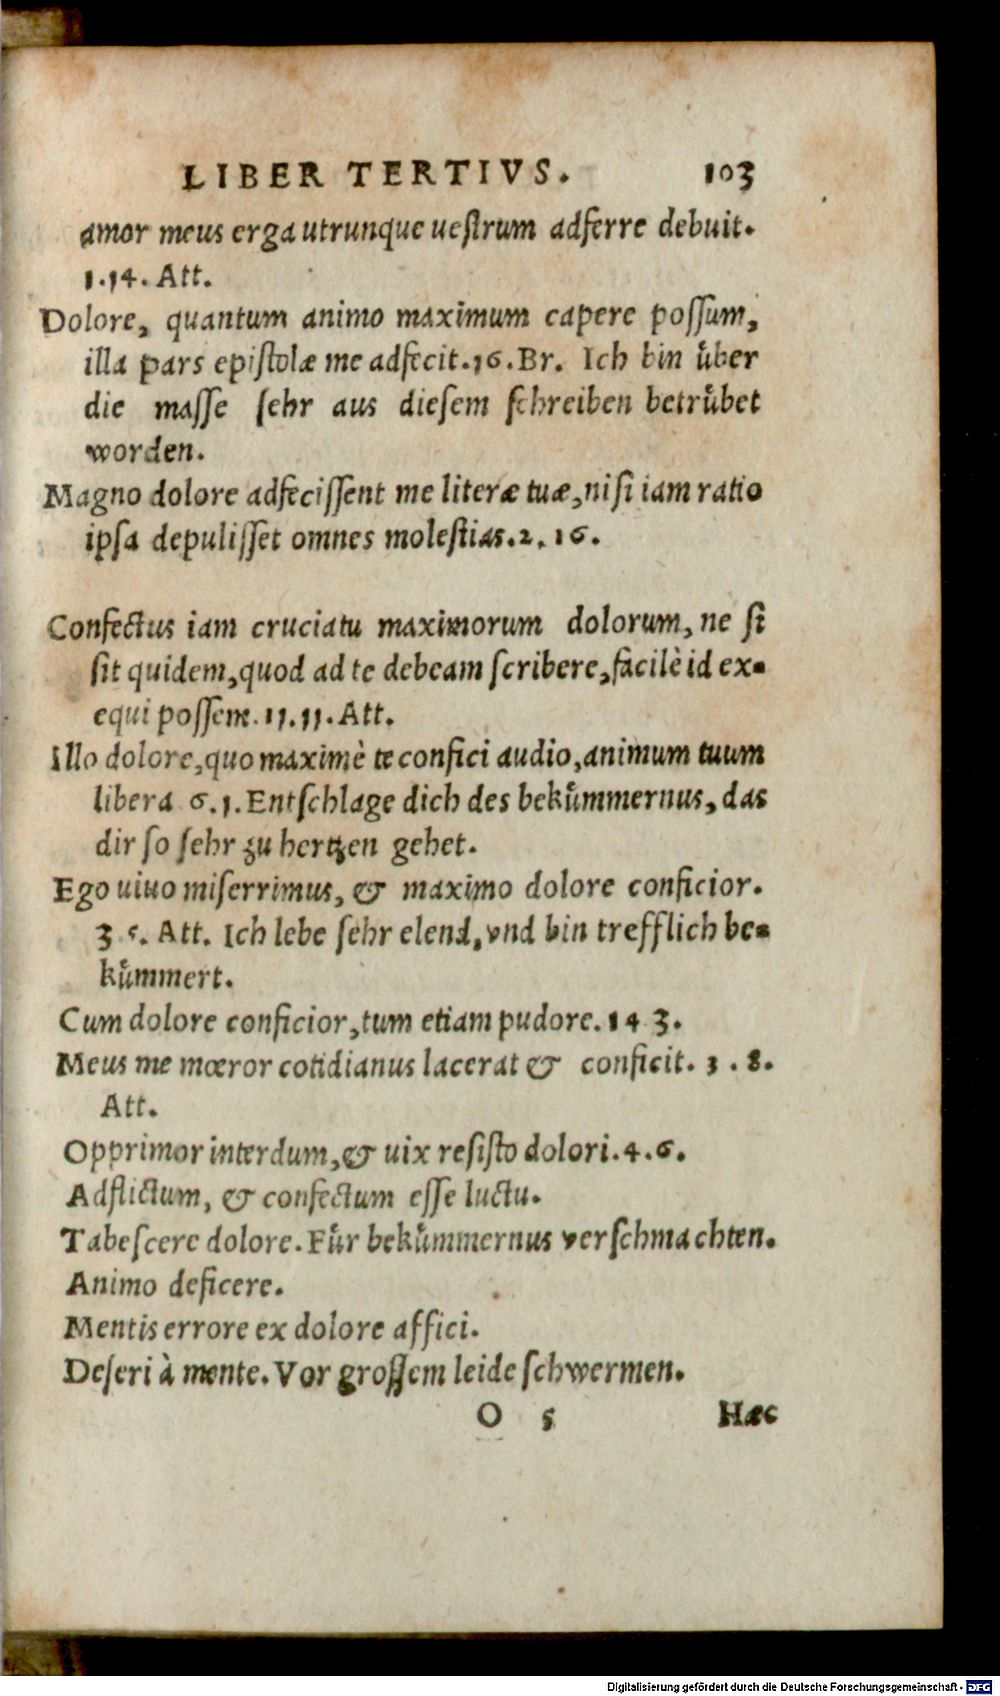 LIBER TERTIVS. 103
amor meus erga utrunque uestrum adferre debuit.
1.14. Att.
Dolore, quantum animo maximum capere possum,
illa pars epistolæ me adfecit.16.Br. Ich bin uͤber
die masse sehr aus diesem schreiben betruͤbet
worden.
Magno dolore adfecissent me literæ tuæ,nisi iam ratio
ipsa depulisset omnes molestias.2.16.
Confectus iam cruciatu maximorum dolorum, ne si
sit quidem,quod ad te debeam scribere,facilè id ex-
equi possem.11.11.Att.
Illo dolore,quo maximè te confici audio,animum tuum
libera 6.1.Entschlage dich des bekuͤmmernus, das
dir so sehr zu hertzen gehet.
Ego uiuo miserrimus, & maximo dolore conficior.
3 5. Att. Ich lebe sehr elend, vnd bin trefflich be-
kuͤmmert.
Cum dolore conficior,tum etiam pudore.14 3.
Meus me mœror cotidianus lacerat & conficit. 3.8.
Att.
Opprimor interdum,& uix resisto dolori.4.6.
Adflictum, & confectum esse luctu.
Tabescere dolore. Fuͤr bekuͤmmernus verschmachten.
Animo deficere.
Mentis errore ex dolore affici.
Deseri à mente. Vor grossem leide schwermen.
O 5 Hæc
Digitalisierung gefördert durch die Deutsche Forschungsgemeinschaft - DFG